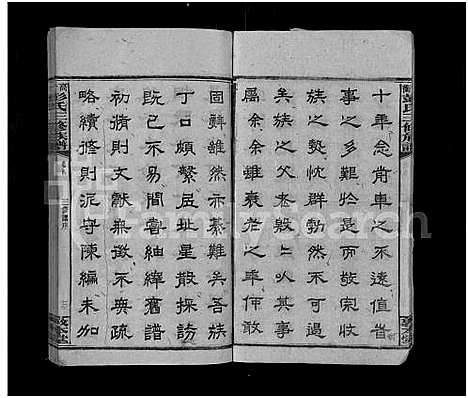 十年念肯車之不遠值省
事之多艱於是而敬宗收
族之忱群勃然不可遏
矣族父老設仁以其事
屬余余雖衰老之年何敢
固辭雖然亦綦難矣吾族
丁口頗繁居址星散採訪
既已不易間嘗紬繹舊譜
初脩則文獻無徵不無疏
略續修則泥守陳編未加
彭氏三修族譜